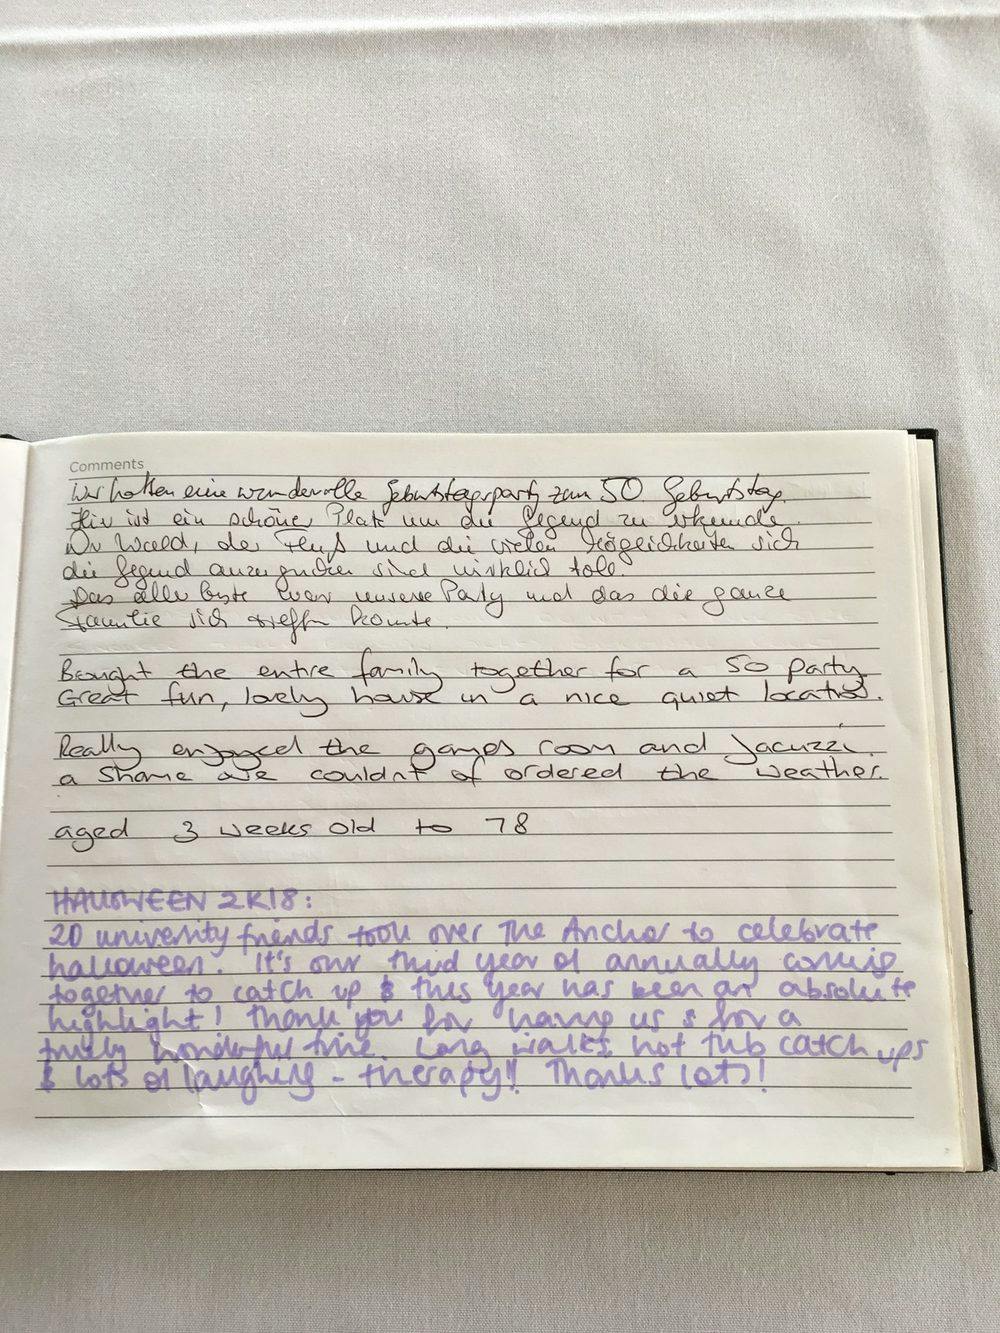 Comments
Wir hatten eine wundervolle Geburtstagsparty zum 50 Geburtstag.
Hier ist ein schöner Platz um die Gegend zu erkunde.
Der Wald, der Fluß und die vielen Möglichkeiten sich
die Gegend anzugucken sind wirklich toll.
Das aller beste war unsere Party und das die ganze
Familie sich treffen konnte.
Brought the entire family together for a 50 party
Great fun, lovely house in a nice quiet location.
Really enjoyed the games room and Jacuzzi.
a shame we couldnt of ordered the weather.
aged 3 weeks old to 78
HALLOWEEN 2K18:
20 university friends took over The Anchor to celebrate
halloween. It's our third year of annually coming
together to catch up & this year has been an absolute
highlight! Thank you for having us & for a
truly wonderful time. Long walks, hot tub catch ups
& lots of laughing - therapy!! Thanks lots!